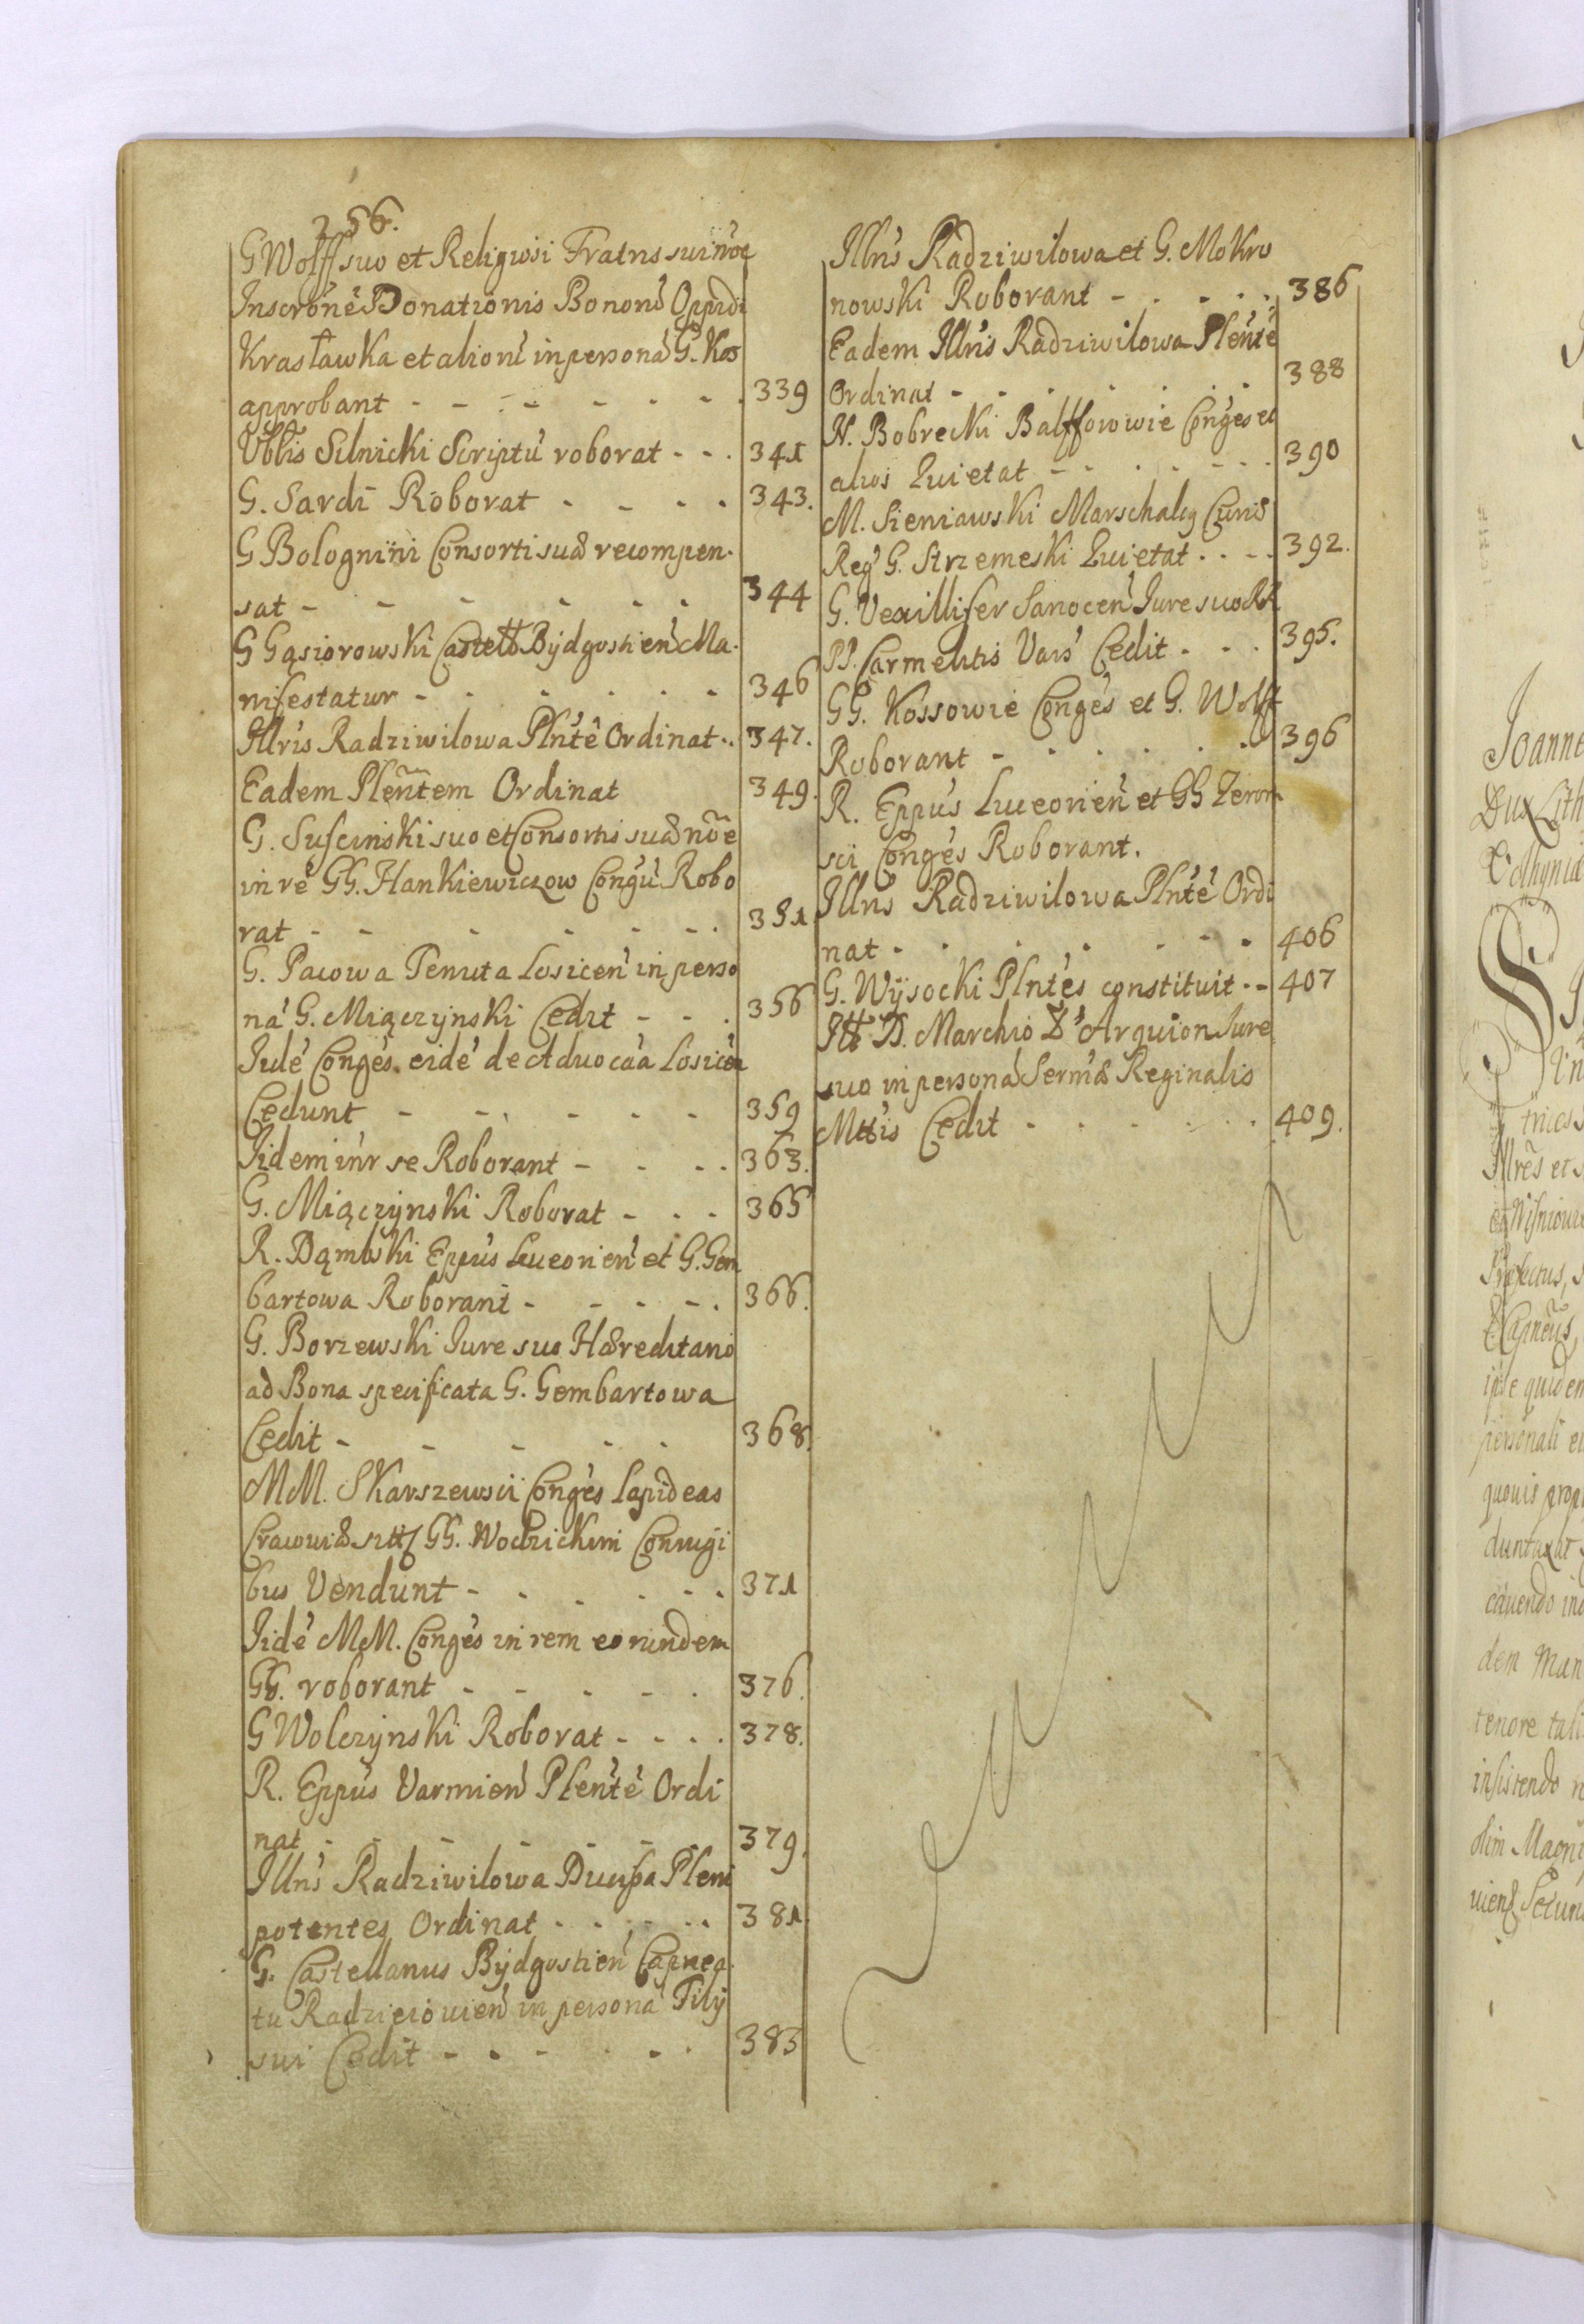 256.
G Wolff suo et Religiosi Fratris sui nōe
Inscrōne Donationis Bonorū Oppidi
Krasławka et aliorū in personā G. Kos
approbant - - - - - - - 339
Nblis Silnicki Scriptū roborat - - . 341
G. Sardi Roborat - - - - 343.
G Bolognini Consorti suæ recompen-
sat - - - - - - 344
G Gąsiorowski Castell Bÿdgostien Ma-
nifestatur - - - - - - 346
Illris Radziwilowa Plnte Ordinat . . 347.
Eadem Plēntem Ordinat 349.
G. Suscinski suo et Consortis suæ nōe
in re GG. Hankiewiczow Congū Robo
rat - - - - - - . 351
G. Pacowa Tenuta Losicen in perso
nā G. Miączÿnski Cedit - - . 356
Iidē Conges eidē de Aduocaa Losicen
Cedunt - - - - - 359
Iidem inr se Roborant - - . . 363.
G. Miączÿnski Roborat - - - 365
R. Dąmbski Eppus Luceorien et G. Gem
bartowa Roborant - - - - . 366.
G. Borzewski Jure suo Hæreditario
ad Bona specificata G. Gembartowa
Cedit - - - - - 368.
MM. Skarszewscii Conges Lapideas
Cracouiæ GG. Wodzickim Coniugi
bus Vendunt - - - - - - 371
Iidē MM. Conges in rem eorundem
GG. roborant - - - - - 376.
G Wolczÿnski Roborat - - - . 378.
R. Eppus Varmien Plente Ordi
nat - - - - - - - 379.
Illris Radziwilowa Ducissa Pleni
potentes Ordinat - - - - - . 381
G. Castellanus Bÿdgostien Capnea
tu Radzieiouien in personā Filÿ
sui Cedit - - - - - - 383
Illris Radziwilowa et G. Mokro
nowski Roborant - - - - - 386
Eadem Illris Radziwilowa Plente
Ordinat - - - - - - 388
N. Bobrecki Balfforowie Conges et
alios Quietat - - - - - - - 390
M. Sieniawski Marschalcg Curiæ
Reg G. Strzemeski Quietat . . - - 392.
G. Vexillifer Sanocen Jure suo RR
PP. Carmelitis Vars Cedit - - . 395.
GG. Kossowie Conges et G. Wolff
Roborant - - - - - - 396
R. Eppus Luceorien et GG Zerom
scii Conges Roborant.
Illris Radziwilowa Plnte Ordi
nat - - - - - - - 406
G. Wÿsocki Plntes constituit - - 407
D. Marchio D'Arquion Jure
suo in personā Sermæ Reginalis
Mttis Cedit - - - - - - 409.
Joanne
Dux Lith
in
trices
Mrēs et
Wisniowie
Præfectus,
Capnēus,
ipse quidem
personali
quouis prop
duntaxat
cauendo
den Man
tenore tali
insistendo
olim Magni